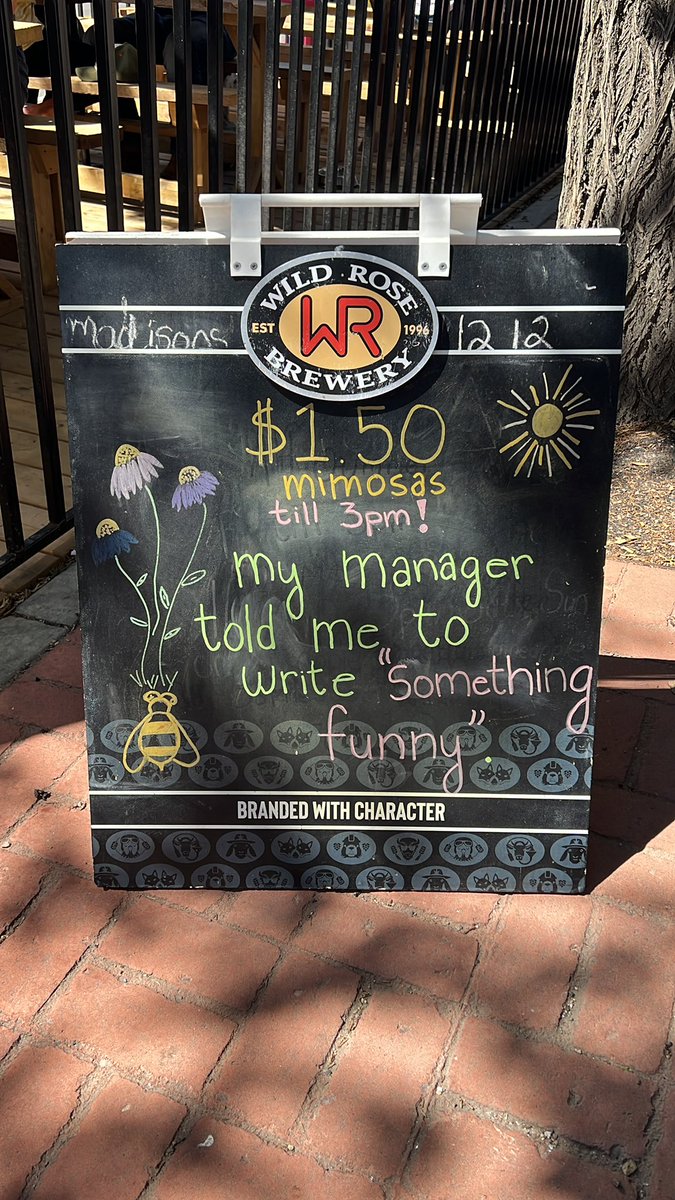 WILD ROSE
EST WR 1996
BREWERY
madisons 12 12
$1.50
mimosas
till 3pm!
my manager
told me to
write "Something
funny"
BRANDED WITH CHARACTER